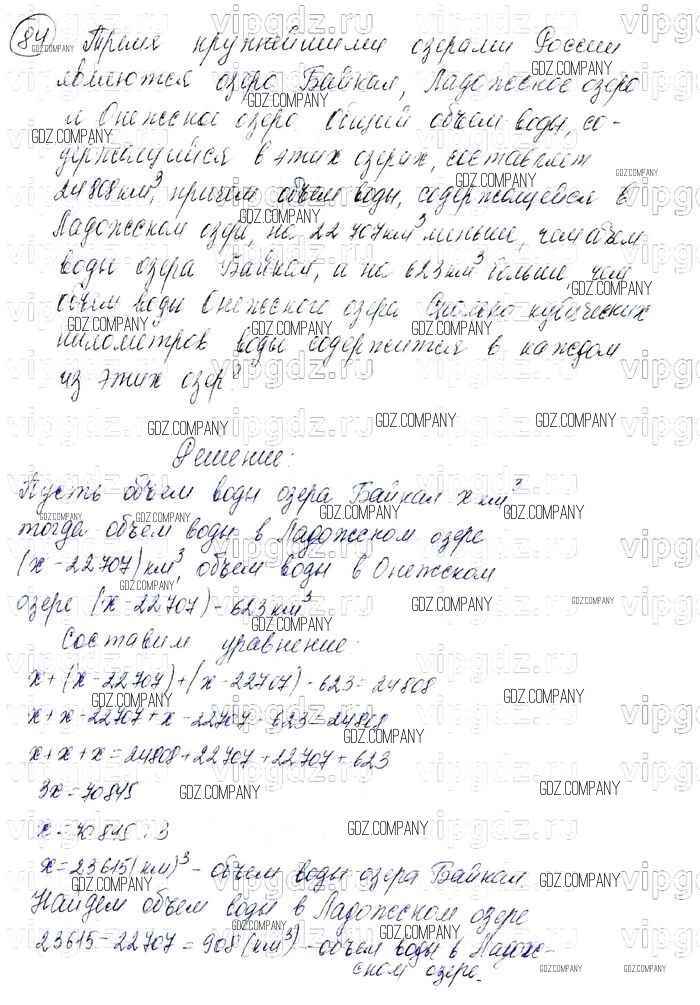 84 Тремя крупнейшими озерами России
являются озеро Байкал, Ладожское озеро
и Онежское озеро Общий объем воды, со-
держащийся в этих озерах, составляет
24808 км³, причем объем воды, содержащейся в
Ладожском озере, на 22 707 км³ меньше, чем объем
воды озера Байкал, и на 623 км³ больше, чем
объем воды Онежского озера Сколько кубических
километров воды содержится в каждом
из этих озер?
Решение:
Пусть объем воды озера Байкал х км³
тогда объем воды в Ладожском озере
(х-22707) км³, объем воды в Онежском
озере (х-22707)-623 км³
Составим уравнение:
х+(х-22707)+(х-22707)-623=24808
х+х-22707+х-22707-623=24808
х+х+х=24808+22707+22707+623
3х=70845
х=70845:3
х=23615(км)³ - объем воды озера Байкал
Найдем объем воды в Ладожском озере
23615-22707=908(км³)-объем воды в Ладож-
ском озере.
GDZ.COMPANY
vipgdz.ru